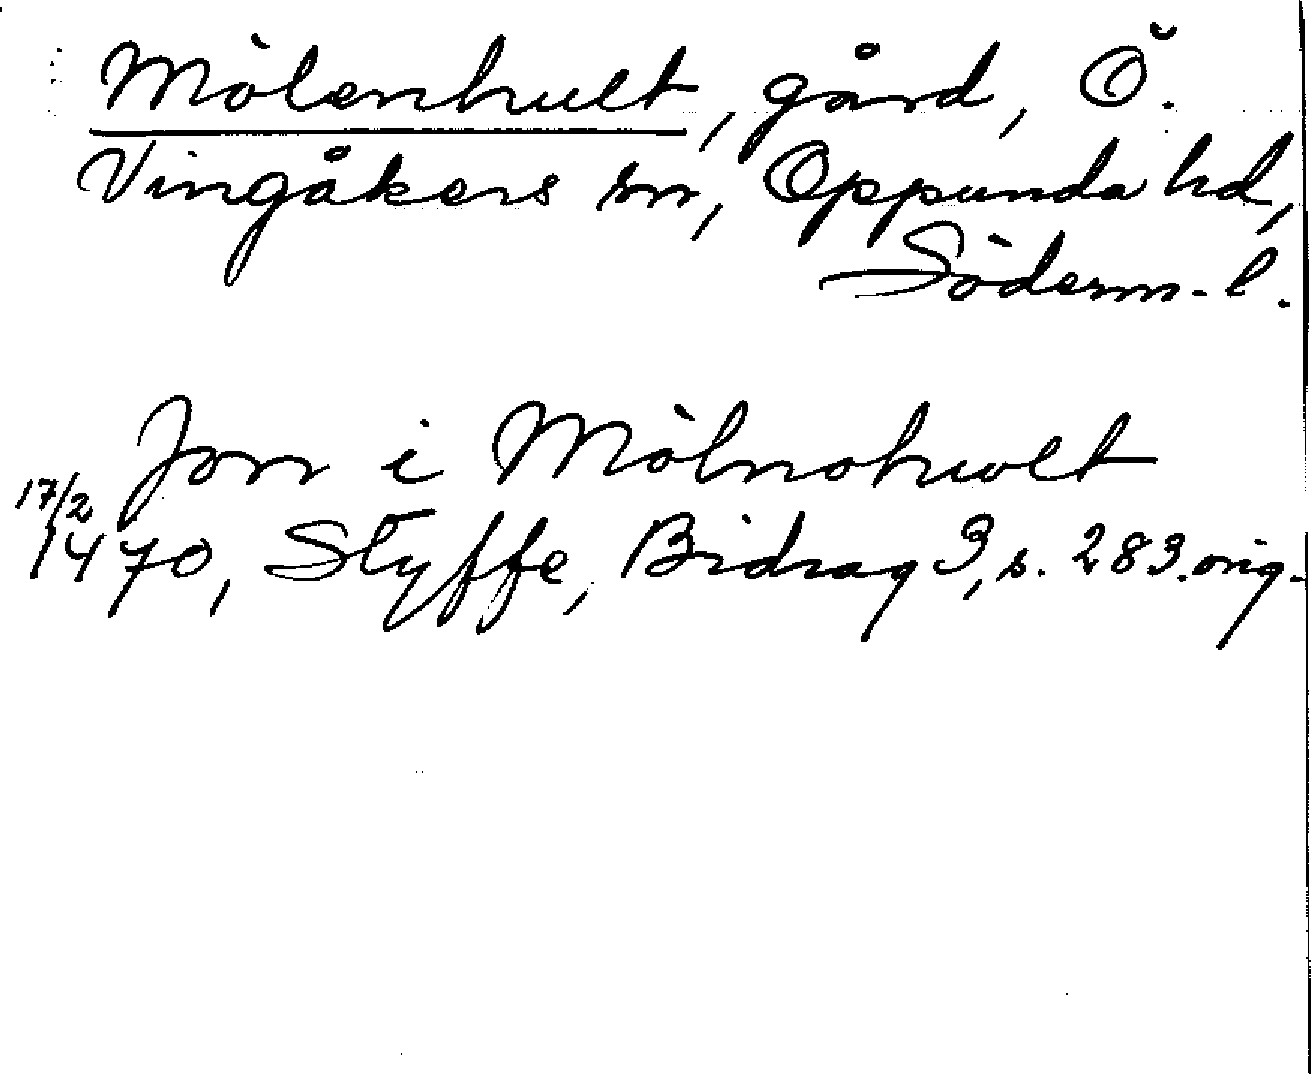 Mölenhult, gård, Ö.
Vingåkers sn, Oppunda hd,
Söderm. l.
Jon i Mölnohwlt
17/2 1470, Styffe, Bidrag 3, s. 283. orig.